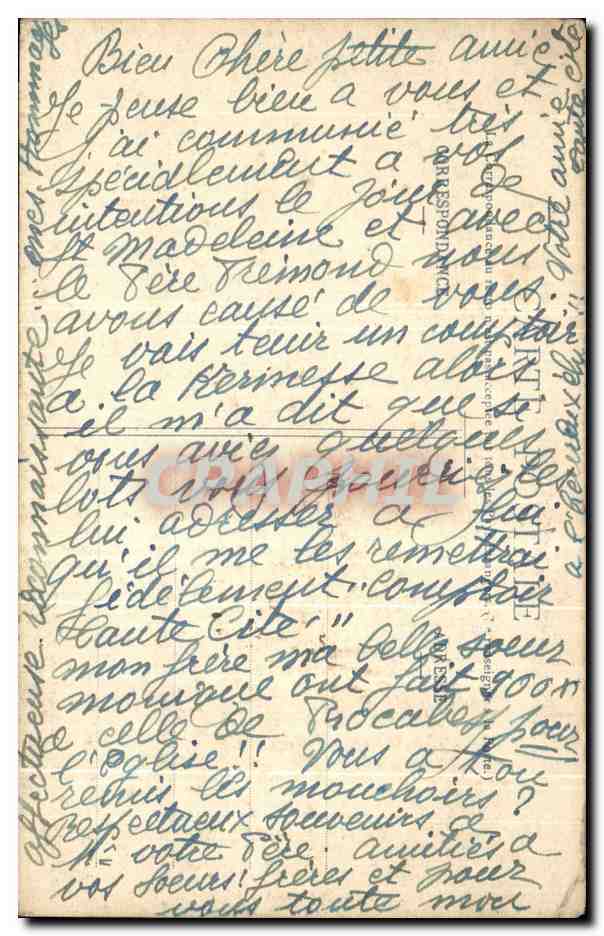 Bien Chère petite amie
Je pense bien a vous et
j'ai communié très
spécialement a vos
intentions le jour de
St Madeleine et avec
le Père Trémond nous
avons causé de vous.
Je vais tenir un comptoir
a la Kermesse alors
il m'a dit que si
vous aviez quelques
lots vous pourriez les
lui adresser a lui
qu'il me les remettrai
fidèlement "Comptoir
Haute Cité"
mon frère ma belle soeur
monique ont fait 900
a celle de pour
l'Eglise!! Vous a t'on
remis les mouchoirs?
Respectueux souvenirs a
Mr votre Père. amitiés a
vos soeurs! frères et pour
vous toute mon
affectueuse reconnaissance.
votre amie
haute cité
CARTE POSTALE
CORRESPONDANCE
ADRESSE
CPAPHIL